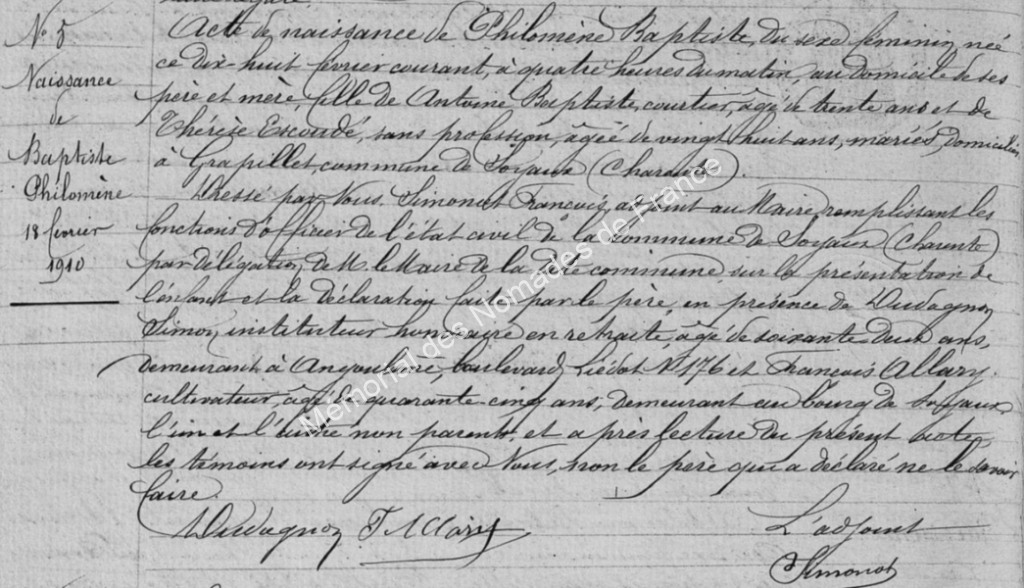 N° 5
Naissance
de
Baptiste
Philomène
18 février
1910
Acte de naissance de Philomène Baptiste, du sexe féminin, née
ce dix-huit février courant, à quatre heures du matin, au domicile de ses
père et mère, fille de Antoine Baptiste, courtier, âgé de trente ans et de
Thérèse Escoudé, sans profession, âgée de vingt huit ans, mariés, domiciliés
à Grapillet, commune de Soyaux (Charente).
Dressé par Nous Simonot François, adjoint au Maire, remplissant les
fonctions d'officier de l'état civil de la commune de Soyaux (Charente)
par délégation de M. le Maire de la dite commune sur la présentation de
l'enfant et la déclaration faite par le père, en présence de Dudognon
Simon, instituteur honoraire en retraite, âgé de soixante deux ans,
demeurant à Angoulême, boulevard Liédot N° 176 et François Allary,
cultivateur, âgé de quarante-cinq ans, demeurant au bourg de Soyaux
l'un et l'autre non parents, et après lecture du présent acte,
les témoins ont signé avec Nous, non le père qui a déclaré ne le savoir
faire.
Dudognon F. Allary L'adjoint
Simonot
Mémorial des Nomades de France